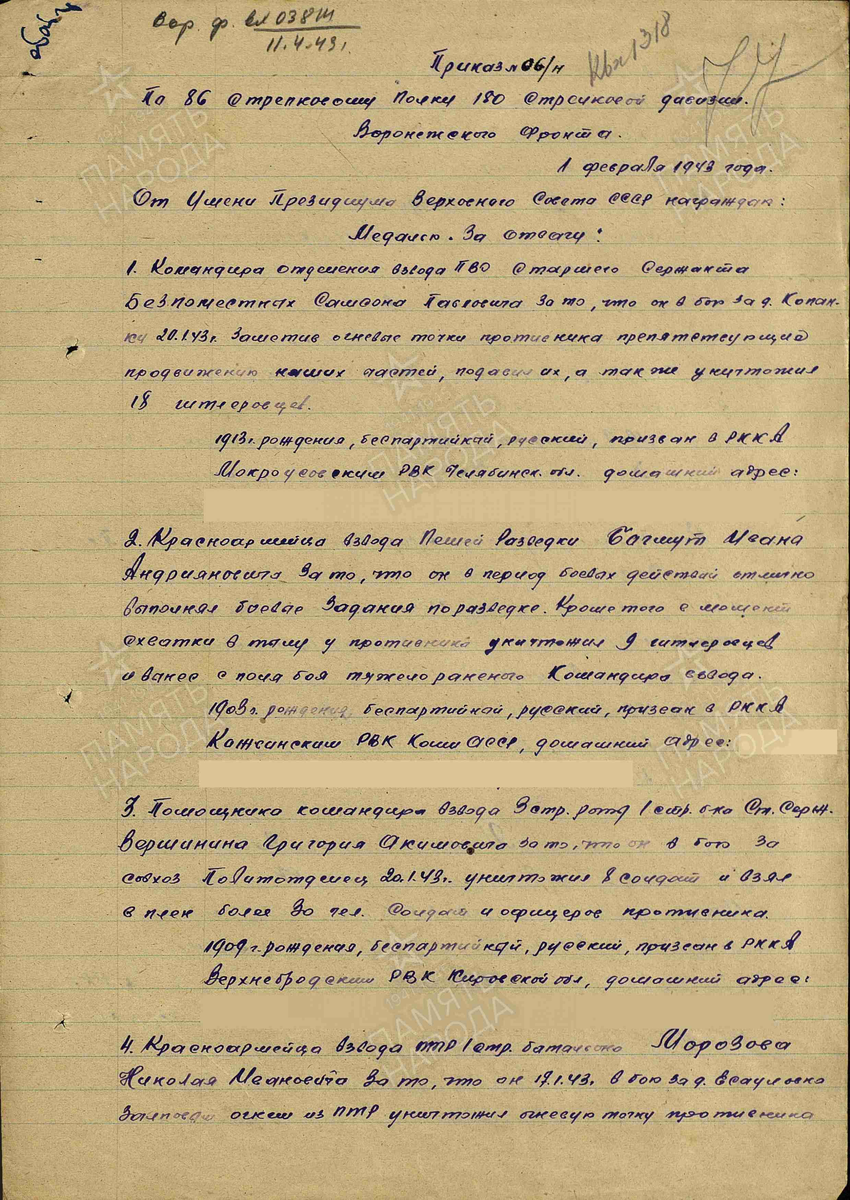 Вор. ф. вл 0381П
11.4.43г.
Приказ № 06/н
По 86 Стрелковому Полку 180 Стрелковой дивизии.
Воронежского Фронта.
1 февраля 1943 года.
От Имени Президиума Верховного Совета СССР награждаю:
Медалью "За отвагу":
1. Командира отделения взвода ПВО Старшего Сержанта
Безпоместных Самсона Павловича За то, что он в бою за д. Копан-
ки 20.1.43г. Заметив огневые точки противника препятствующие
продвижению наших частей, подавил их, а так же уничтожил
18 гитлеровцев.
1913г. рождения, беспартийный, русский, призван в РККА
Мокроусовским РВК Челябинск. обл. домашний адрес:
2. Красноармейца взвода Пешей Разведки Багмут Ивана
Андрияновича За то, что он в период боевых действий отлично
выполнял боевые Задания по разведке. Кроме того в момент
схватки в тылу у противника уничтожил 9 гитлеровцев
и вынес с поля боя тяжело раненого Командира взвода.
1903г. рождения, беспартийный, русский, призван в РККА
РВК Коми АССР, домашний адрес:
3. Помощника командира взвода 3 стр. роты 1 стр. б-на Ст. Серж.
Вершинина Григория Акимовича за то, что он в бою за
совхоз Политотделец 20.1.43г. уничтожил 8 солдат и взял
в плен более 30 чел. Солдат и офицеров противника.
1909г. рождения, беспартийный, русский, призван в РККА
РВК Кировской обл, домашний адрес:
4. Красноармейца взвода ПТР 1 стр. батальона Морозова
Николая Ивановича За то, что он 17.1.43г. в бою за д. Есауловка
огнем из ПТР уничтожил огневую точку противника
ПАМЯТЬ
НАРОДА